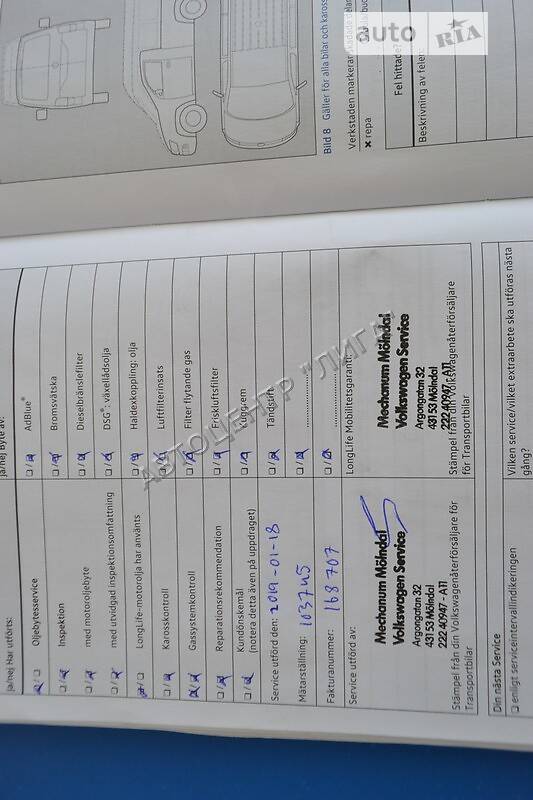 auto RIA
Bild 8 Gäller för alla bilar och kaross
Verkstaden markerar
repa
Fel hittade?
Beskrivning av felen
АВТОЦЕНТР "ЛИГА"
ja/nej Har utförts:
Oljebytesservice
Inspektion
med motoroljebyte
med utvidgad inspektionsomfattning
LongLife-motorolja har använts
Karosskontroll
Gassystemkontroll
Reparationsrekommendation
Kundönskemål
(notera detta även på uppdraget)
Service utförd den: 2019-01-18
Mätarställning: 103745
Fakturanummer: 168707
Service utförd av:
Mechanum Mölndal
Volkswagen Service
Argongatan 32
431 53 Mölndal
222 40947 - ATI
Stämpel från din Volkswagenåterförsäljare för
Transportbilar
ja/nej Byte av:
AdBlue®
Bromsvätska
Dieselbränslefilter
DSG®: växellådsolja
Haldexkoppling: olja
Luftfilterinsats
Filter flytande gas
Friskluftsfilter
Kuggrem
Tändstift
LongLife Mobilitetsgaranti:
Mechanum Mölndal
Volkswagen Service
Argongatan 32
431 53 Mölndal
222 40947 - ATI
Stämpel från din Volkswagenåterförsäljare
för Transportbilar
Din nästa Service
enligt serviceintervallindikeringen
Vilken service/vilket extraarbete ska utföras nästa
gång?